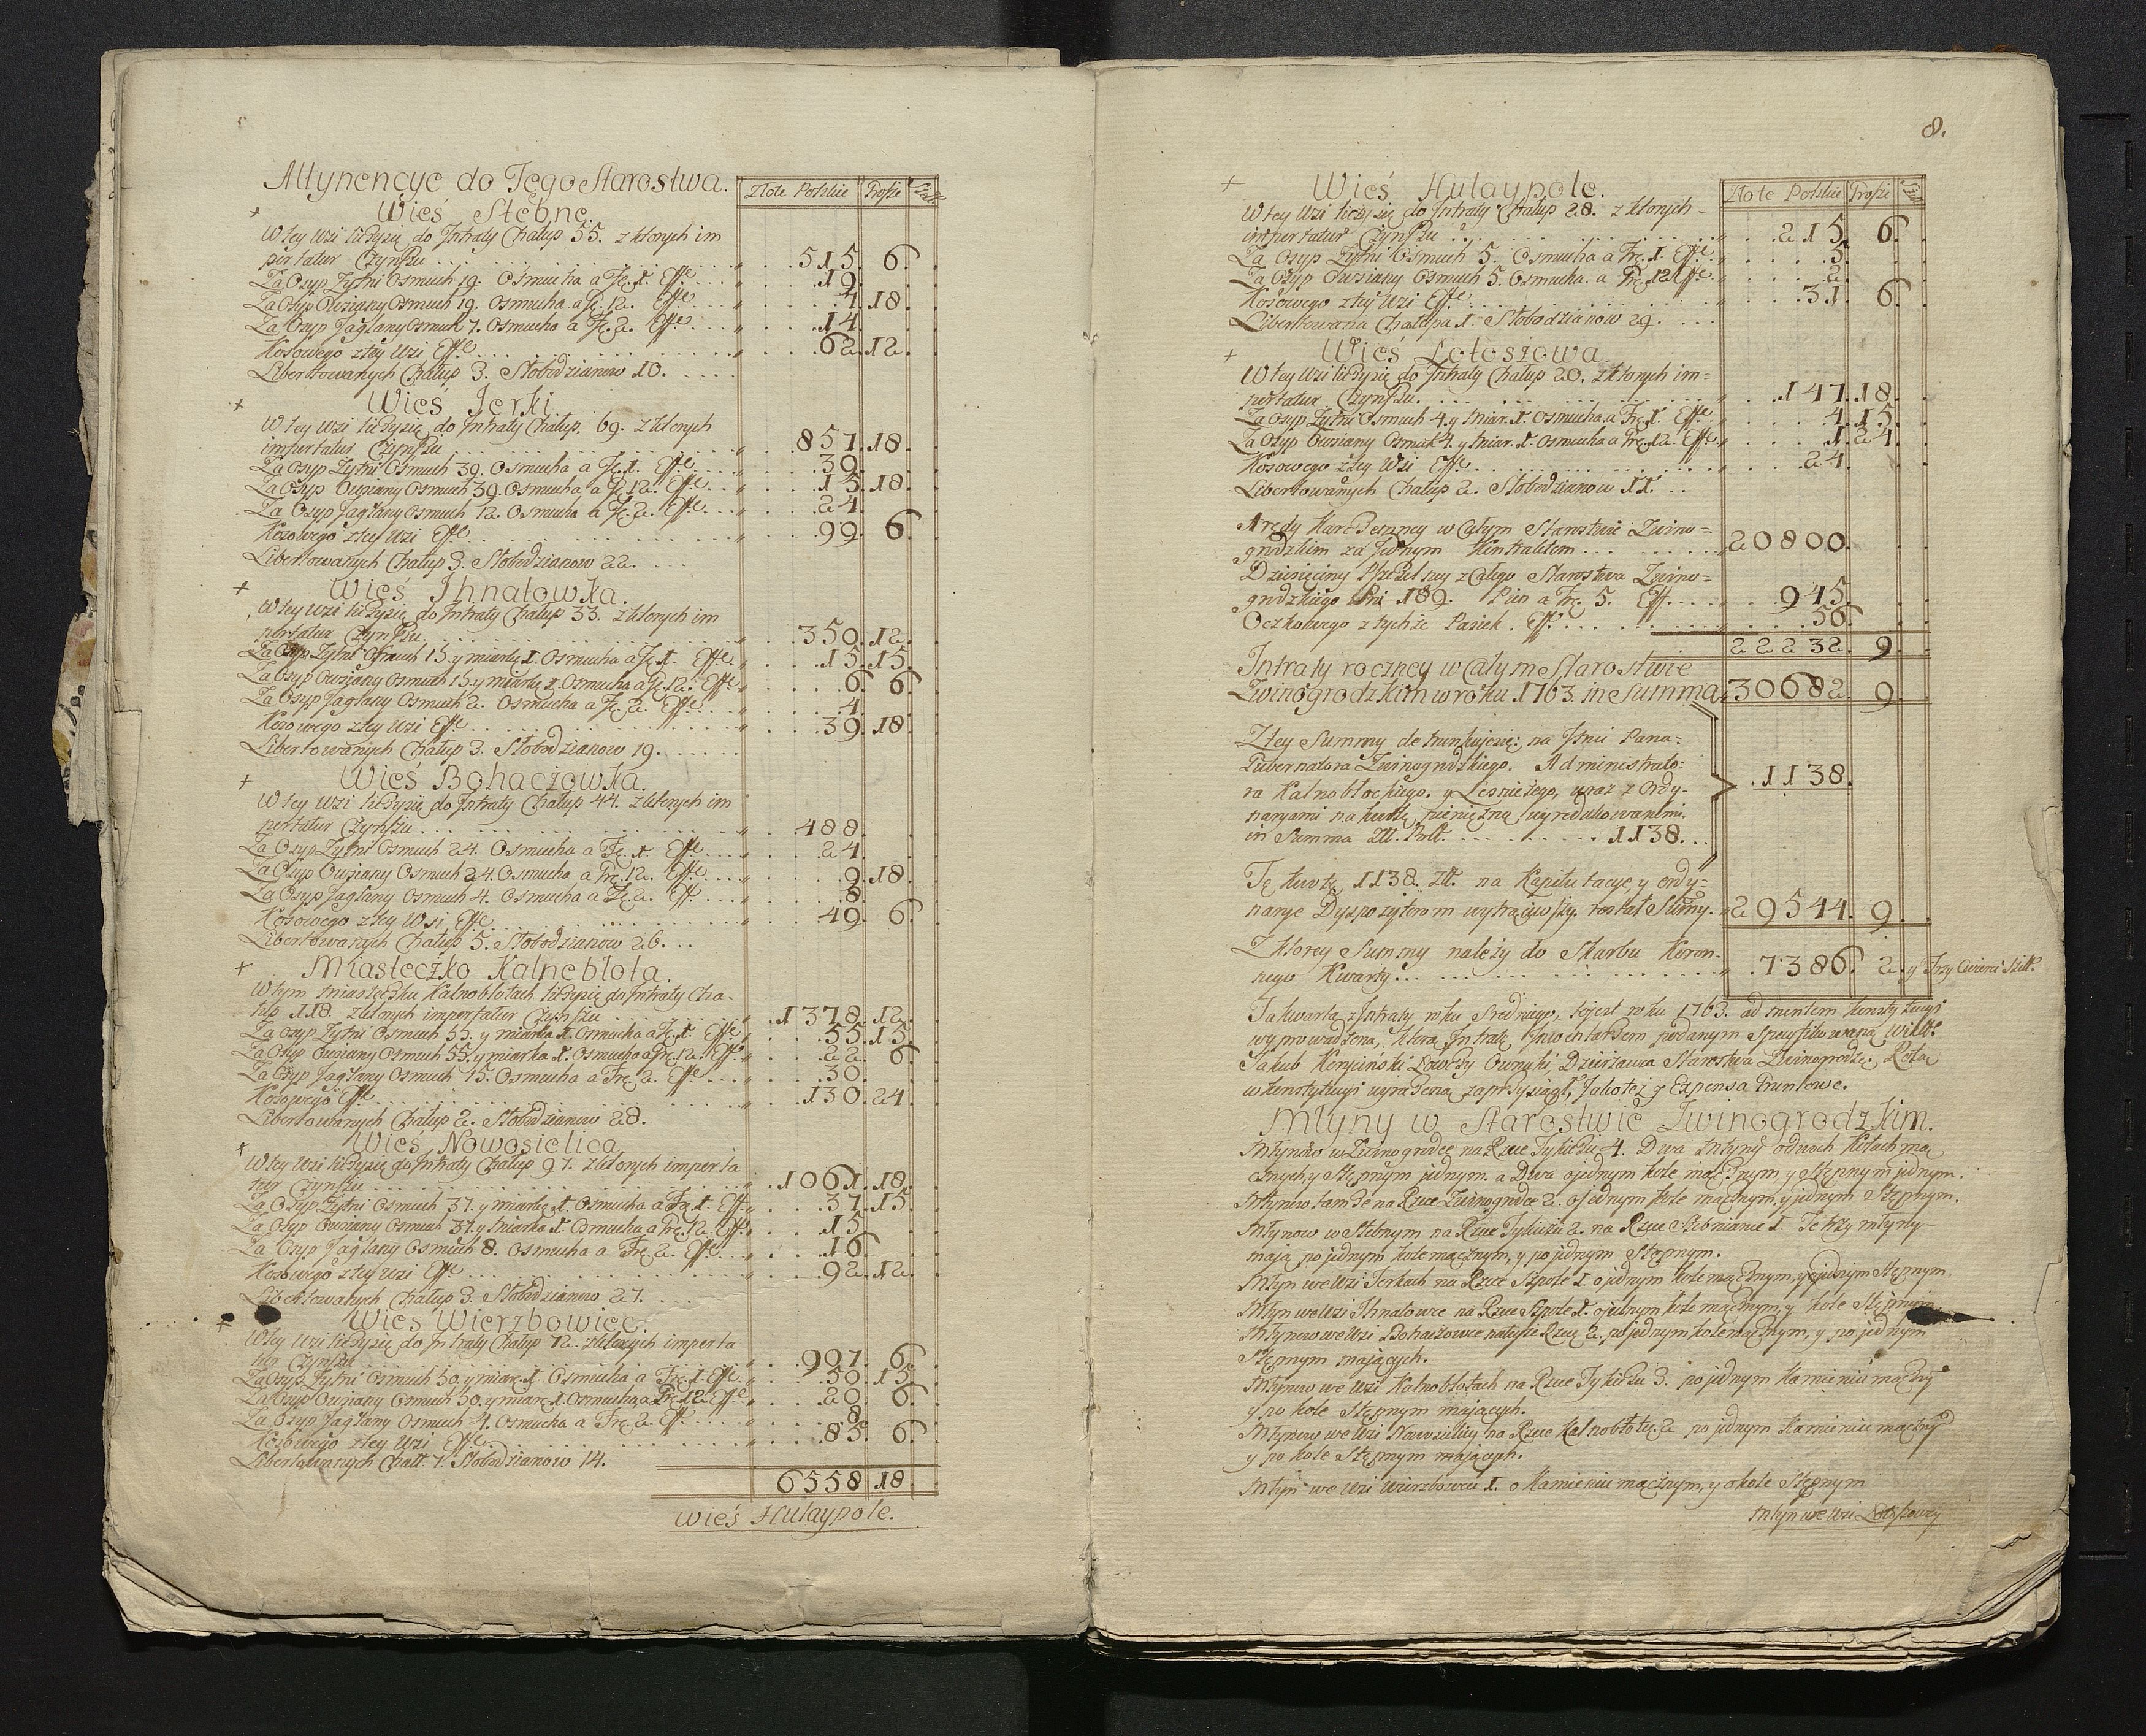 Attynencye do Tego Starostwa.
Złote Polskie Grosze Szel.
+ Wieś Stebne.
W tey Wsi liczy się do Intraty Chałup 55. z ktorych im
pertatur Czynszu . . . 515. 6.
Za Osyp Zytni Osmuch 19. Osmucha a Fr. 1. Effe. . . 19.
Za Osyp Owsiany Osmuch 19. Osmucha a gr. 12. Effe. . . 7. 18.
Za Osyp Jaglany Osmuch 7. Osmucha a Fr. 2. Effe. . . 14.
Kosowego z tey Wsi Effe. . . 62. 12.
Libertowanych Chałup 3. Słobodzianow 10. . . .
+ Wieś Jerki
W tey Wsi liczy się do Intraty Chałup. 69. z ktorych
impertatur Czynszu . . . 857. 18.
Za Osyp Zytni Osmuch 39. Osmucha a Fr. 1. Effe. . . 39.
Za Osyp Owsiany Osmuch 39. Osmucha a gr. 12. Effe. . . 15. 18.
Za Osyp Jaglany Osmuch 12. Osmucha a Fr. 2. Effe. . . 24.
Kosowego z tey Wsi Effe. . . 99. 6.
Libertowanych Chałup 3. Słobodzianow 22. . . .
+ Wieś Ihnatowka.
W tey Wsi liczy się do Intraty Chałup 33. z ktorych im
pertatur Czynszu. . . 350. 12.
Za Osyp Zytni Osmuch 15. y miarkę 1. Osmucha a Fr. 1. Effe. 15. 15.
Za Osyp Owsiany Osmuch 15. y miarkę 1. Osmucha a gr. 12. Effe. 6. 6.
Za Osyp Jaglany Osmuch 2. Osmucha a Fr. 2. Effe. . . 4.
Kosowego z tey Wsi Effe. . . 39. 18.
Libertowanych Chałup 3. Słobodzianow 19. . . .
+ Wieś Bohaczowka.
W tey Wsi liczy się do Intraty Chałup 44. z ktorych im
pertatur Czynszu . . . 488.
Za Osyp Zytni Osmuch 24. Osmucha a Fr. 1. Effe. . . 24.
Za Osyp Owsiany Osmuch 24. Osmucha a gr. 12. Effe. . . 9. 18.
Za Osyp Jaglany Osmuch 4. Osmucha a Fr. 2. Eff. . . 8.
Kosowego z tey Wsi Effe. . . 49. 6.
Libertowanych Chałup 5. Słobodzianow 26. . . .
+ Miasteczko Kalnebłota.
W tym Miasteczku Kalnobłotach liczy się do Intraty Cha-
łup 118. z ktorych impertatur Czynszu . . . 1378. 12.
Za Osyp Zytni Osmuch 55. y miarka 1. Osmucha a Fr. 1. Effe. 55. 15.
Za Osyp Owsiany Osmuch 55. y miarka 1. Osmucha a gr. 12. Effe. 22. 6
Za Osyp Jaglany Osmuch 15. Osmucha a Fr. 2. Effe. . . 30.
Kosowego Effe. . . 130. 24.
Libertowanych Chałup 2. Słobodzianow 28.
+ Wieś Nowosielica
W tey Wsi liczy się do Intraty Chałup 97. z ktorych imperta
tur Czynszu . . . 1061. 18.
Za Osyp Zytni Osmuch 37. y miarkę 1. Osmucha a Fr. 1. Eff. 37. 15.
Za Osyp Owsiany Osmuch 37. y Miarka 1. Osmucha a Fr. 12. Eff. 15.
Za Osyp Jaglany Osmuch 8. Osmucha a Fr. 2. Effe. . . 16.
Kosowego z tey Wsi Effe. . . 92. 12.
Libertowanych Chałup 3. Słobodzianow 27. . . .
+ Wieś Wierzbowiec.
W tey Wsi liczy się do Intraty Chałup 72. z ktorych imperta
tur Czynszu . . . 907. 6.
Za Osyp Zytni Osmuch 50. y miar. 1. Osmucha a Fr. 1. Effe. 50. 15.
Za Osyp Owsiany Osmuch 50. y miarę 1. Osmucha a gr. 12. Effe. 20. 6.
Za Osyp Jaglany Osmuch 4. Osmucha a Fr. 2. Eff. . . 8.
Kosowego z tey Wsi Effe. . . 85. 6.
Libertowanych Chałł. 7. Słobodzianow 14.
6558. 18.
Wieś Hulaypole.
8.
Złote Polskie Grosze
+ Wieś Hulaypole.
W tey Wsi liczy się do Intraty Chałup 28. z ktorych-
impertatur Czynszu . . . 215. 6.
Za Osyp Zytni Osmuch 5. Osmucha a Fr. 1. Effe. . . 5.
Za Osyp Owsiany Osmuch 5. Osmucha a gr. 12. Effe. . . 2.
Kosowego z tey Wsi Effe. . . 31. 6.
Libertowana Chałupa 1. Słobodzianow 29. . . .
+ Wieś Łotoszowa.
W tey Wsi liczy się do Intraty Chałup 20. z ktorych im=
pertatur Czynszu. . . 147. 18.
Za Osyp Zytni Osmuch 4. y Miar. 1. Osmucha a Fr. 1. Effe. 4. 15.
Za Osyp Owsiany Osmuch 4. y Miar. 1. Osmucha a Fr. 12. Effe. 1. 24.
Kosowego z tey Wsi Effe. . . 24.
Libertowanych Chałup 2. Słobodzianow 11. . .
Arędy Karczemney w Całym Starostwie Zwino=
grodzkim za Jednym Kontraktem . . . 20800.
Dziesięciny Pszczelney z Całego Starostwa Zwino=
grodzkiego Pni 189. Pień a Fr. 5. Eff. . . 945.
Oczkowego z tychże Pasiek. Eff. . . 56.
22232. 9.
Intraty roczney w Całym Starostwie
Zwinogrodzkim w roku 1763. in Summa 30682. 9.
Z tey Summy detrunkuje się na
Gubernatora Zwinogrodzkiego. Administrato=
ra Kalnobłockiego. y Leśniczego, wraz z Ordy-
naryami na kwotę pieniężną wyredukowanemi.
in Summa Złł. Poll. . . . 1138. . .
1138.
Tę kwotę 1138. Złł. na Kapitulacye, y ordy=
narye Dyspozytorom wytrąciwszy. restat Summy. 29544. 9.
Z ktorey Summy należy do Skarbu Koron-
nego Kwarty . . . 7386. 2. y Trzy Cwierci Szelł.
Ta kwarta z Intraty roku Sredniego, to jest roku 1763. ad mentem Konstytucyi
wyprowadzona, ktorą Intratę Inwentarzem podanym Specyfikowaną, Wielm.
Jakub Łowczy Owrucki, Dzierżawca Starostwa Zwinogrodz. Rotą
w Konstytucyi wyrażoną zaprzysiągł, Jako też y Expensa Gruntowe.
Młyny w Starostwie Zwinogrodzkim.
Młynów w Zwinogrodce na Rzece Tykiczu 4. Dwa Młyny o dwoch Kołach mą
cznych, y Stępnym jednym. a Dwa o jednym kole mącznym y Stępnym jednym.
Młynów tamże na Rzece Zwinogrodce 2. o jednym kole mącznym, y jednym Stępnym.
Młynow w Stebnym na Rzece Tykiczu 2. na Rzece Stebniance 1. Te trzy młyny
mają po jednym kole mącznym, y po jednym Stępnym.
Młyn we Wsi Jerkach na Rzece Szpole 1. o jednym kole mącznym, y o jednym Stępnym.
Młyn we Wsi Ihnatowce na Rzece Szpole 1. o jednym kole mącznym, y kole Stępnym.
Młynow we Wsi Bohaczowce na teyże Rzece 2. po jednym kole mącznym, y po jednym
Stępnym mających.
Młynow we Wsi Kalnobłotach na Rzece Tykiczu 3. po jednym Kamieniu mączny
y po kole Stępnym mających.
Młynow we Wsi Nowosielicy na Rzece Kalnobłoty. 2. po jednym Kamieniu mączny
y po kole Stępnym mających.
Młyn we Wsi Wierzbowcu 1. o Kamieniu mącznym, y o kole Stępnym
Młyn we Wsi Łotoszowey